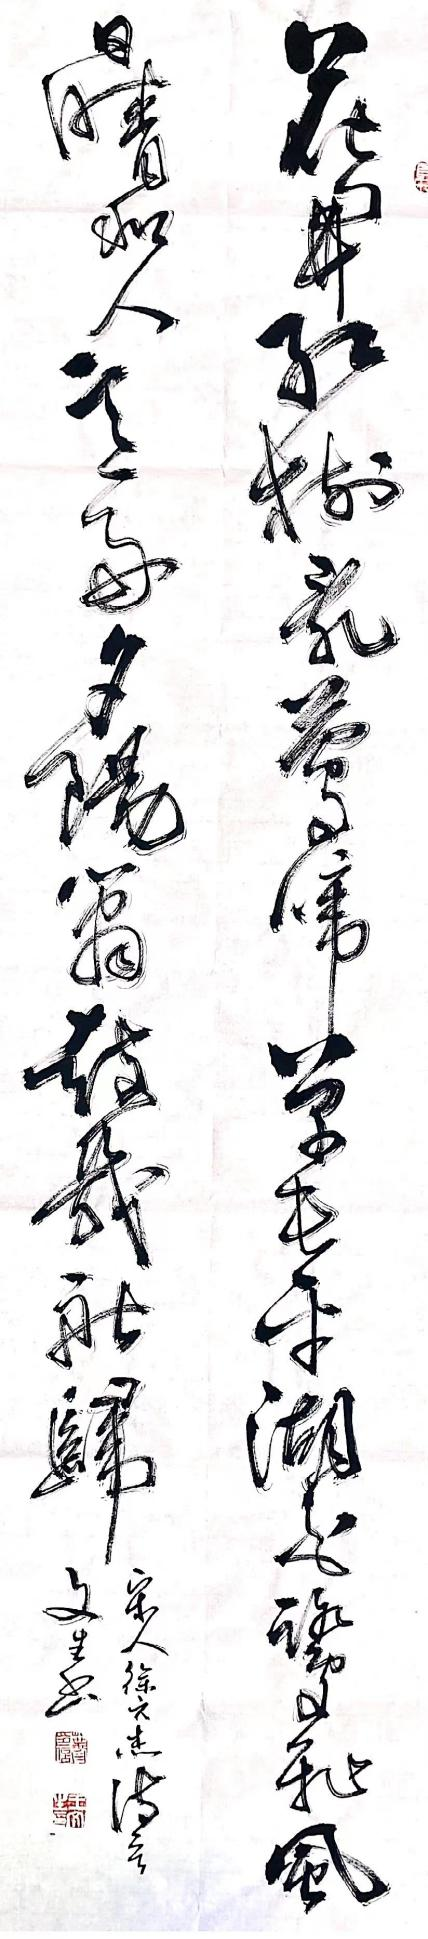 花開紅樹亂鶯啼草長平湖白鷺飛風
日晴和人意好夕陽簫鼓幾船歸
宋人徐元杰詩
文生书